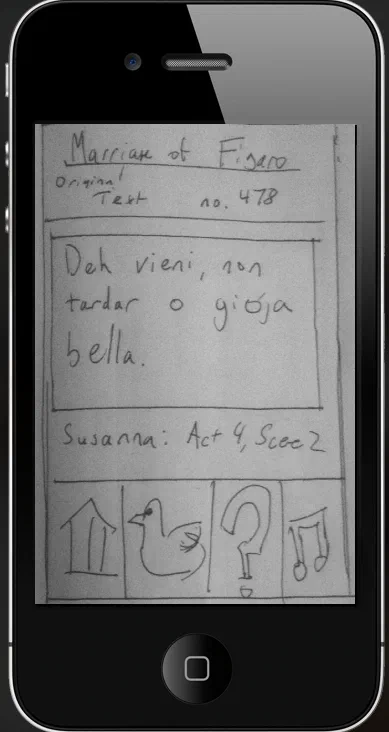 Marriage of Figaro
Original
Text no. 478
Deh vieni, non
tardar o gioja
bella.
Susanna: Act 4, Scee 2